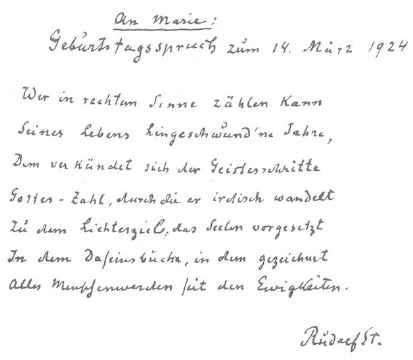 An Marie:
Geburtstagsspruch zum 14. März 1924
Wer in rechtem Sinne zählen kann
Seines Lebens hingeschwund'ne Jahre,
Dem verkündet sich der Geistesschritte
Gottes-Zahl, durch die er irdisch wandelt
Zu dem Lichtesziele, das Seelen vorgesetzt
In dem Daseinsbuche, in dem gezeichnet
Alles Menschenwerden seit den Ewigkeiten.
Rudolf St.